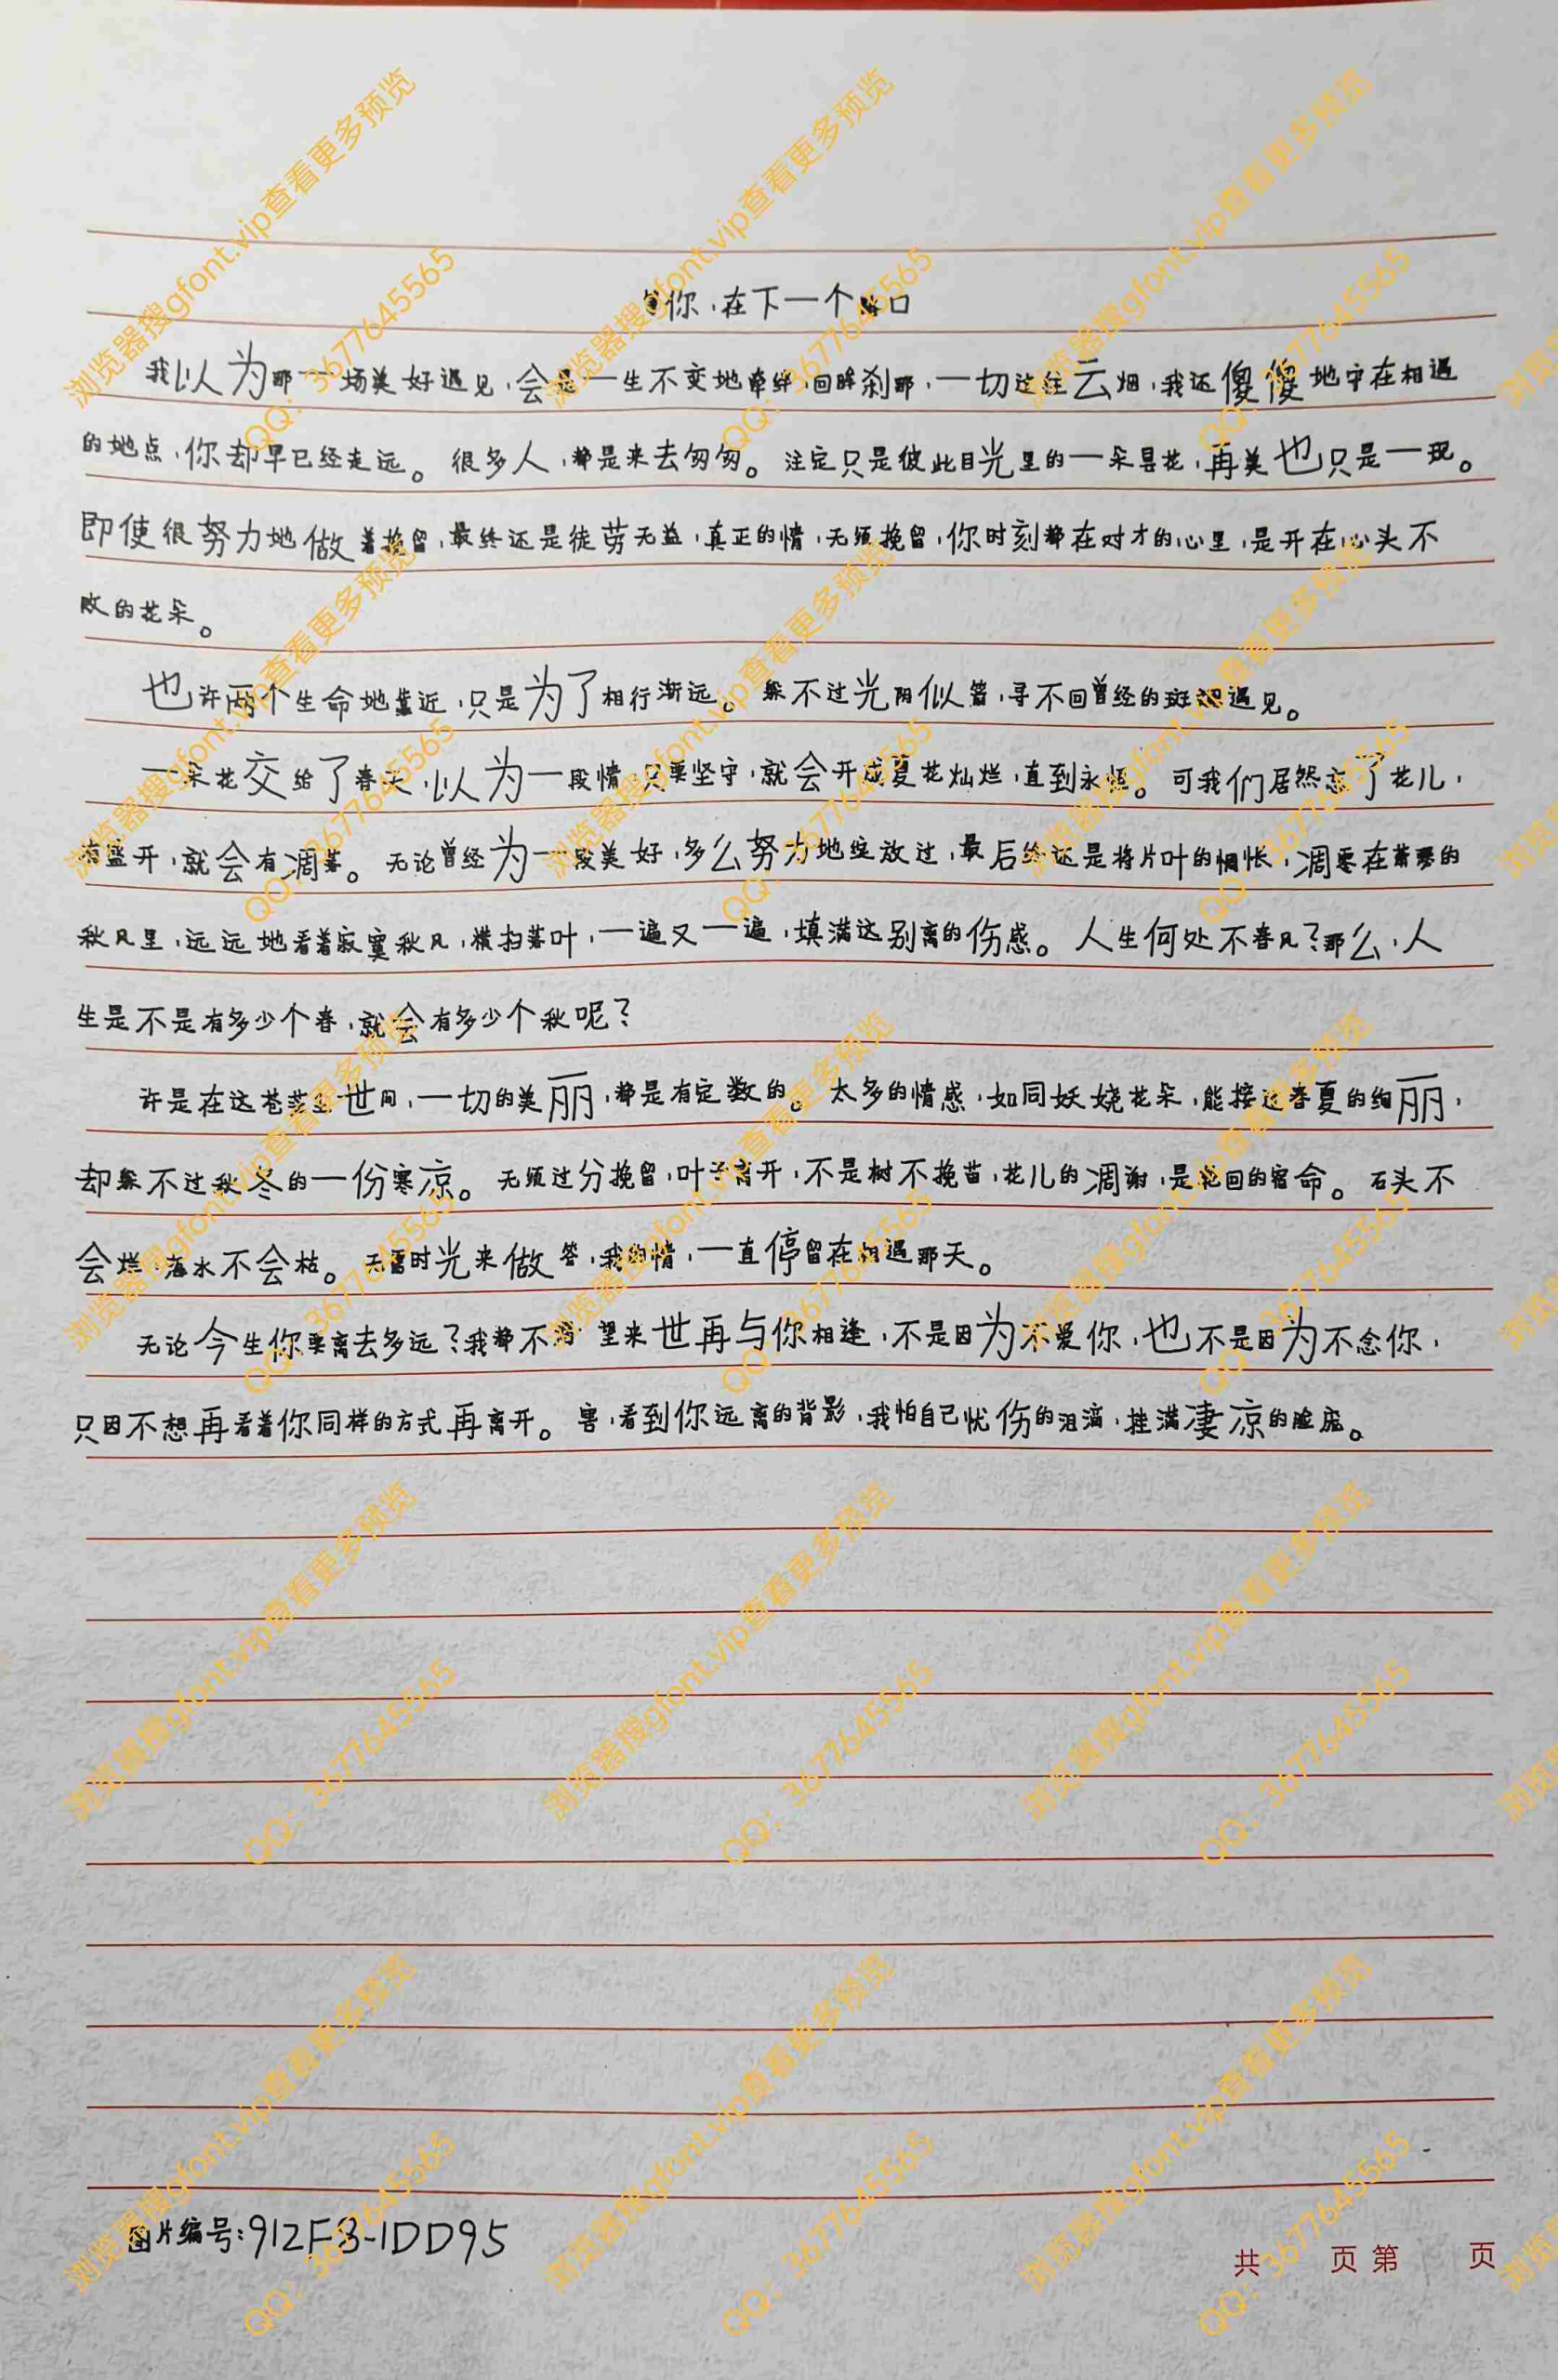 你，在下一个路口
我以为那一场美好遇见，会是一生不变地牵绊，回眸刹那，一切过往云烟，我还傻傻地守在相遇
的地点，你却早已经走远。很多人，都是来去匆匆。注定只是彼此目光里的一朵昙花，再美也只是一现。
即使很努力地做着挽留，最终还是徒劳无益，真正的情，无须挽留，你时刻都在对才的心里，是开在心头不
败的花朵。
也许两个生命地靠近，只是为了相行渐远。躲不过光阴似箭，寻不回曾经的斑斓遇见。
一朵花交给了春天，以为一段情，只要坚守，就会开成夏花灿烂，直到永恒。可我们居然忘了花儿，
有盛开，就会有凋落。无论曾经为一段美好，多么努力地绽放过，最后终还是将片叶的惆怅，凋零在萧瑟的
秋风里，远远地看着寂寞秋风，横扫落叶，一遍又一遍，填满这别离的伤感。人生何处不春风？那么，人
生是不是有多少个春，就会有多少个秋呢？
许是在这苍茫尘世间，一切的美丽，都是有定数的。太多的情感，如同妖娆花朵，能接过春夏的绚丽，
却躲不过秋冬的一份寒凉。无须过分挽留，叶子离开，不是树不挽留，花儿的凋谢，是轮回的宿命。石头不
会烂，海水不会枯。无需时光来做答，我的情，一直停留在相遇那天。
无论今生你要离去多远？我都不渴望来世再与你相逢，不是因为不爱你，也不是因为不念你，
只因不想再看着你同样的方式再离开。害，看到你远离的背影，我怕自己忧伤的泪滴，挂满凄凉的脸庞。
图片编号：912F3-1DD95
共 页 第 页
浏览器搜gfont.vip查看更多预览
QQ：3677645565